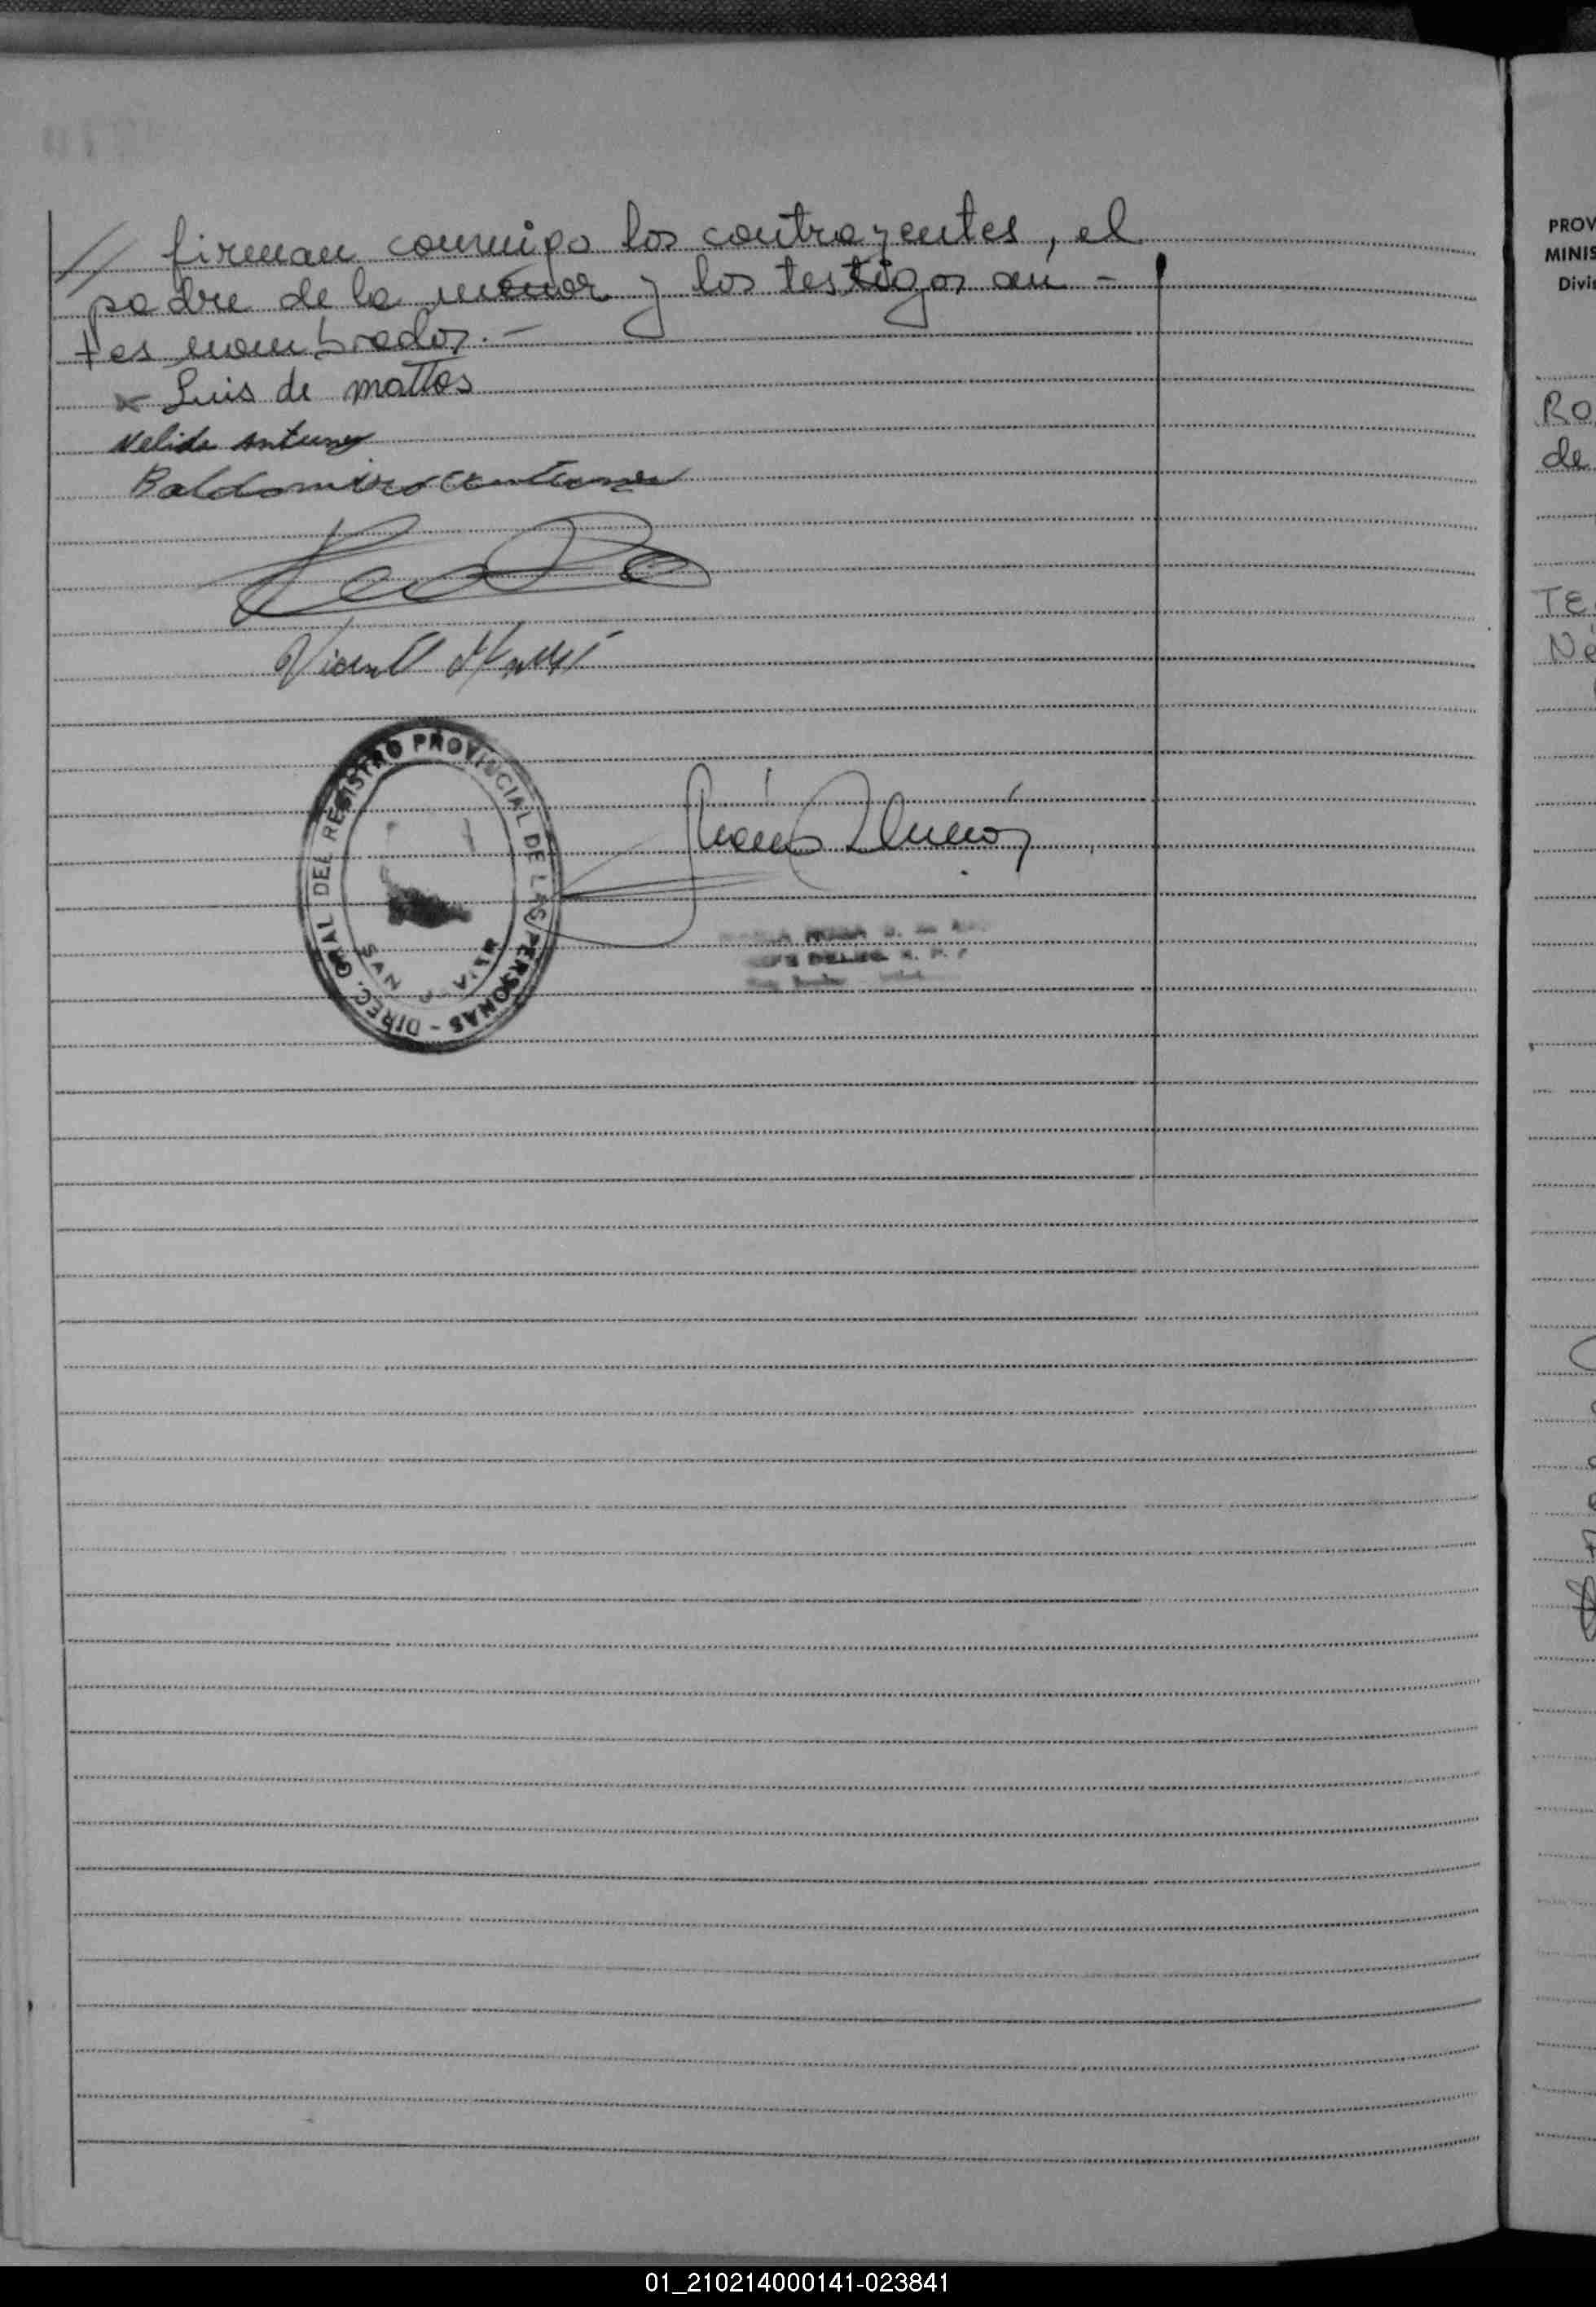 // firman conmigo los contrayentes, el
padre de la menor y los testigos an -
tes nombrados. -
Luis de mattos
Nelida Antunes
Baldomiro Antunes
DIREC. GRAL DEL REGISTRO PROVINCIAL DE LAS PERSONAS -
SAN
PROV
MINIS
Divis
RO
de
TE
Né
01_210214000141-023841